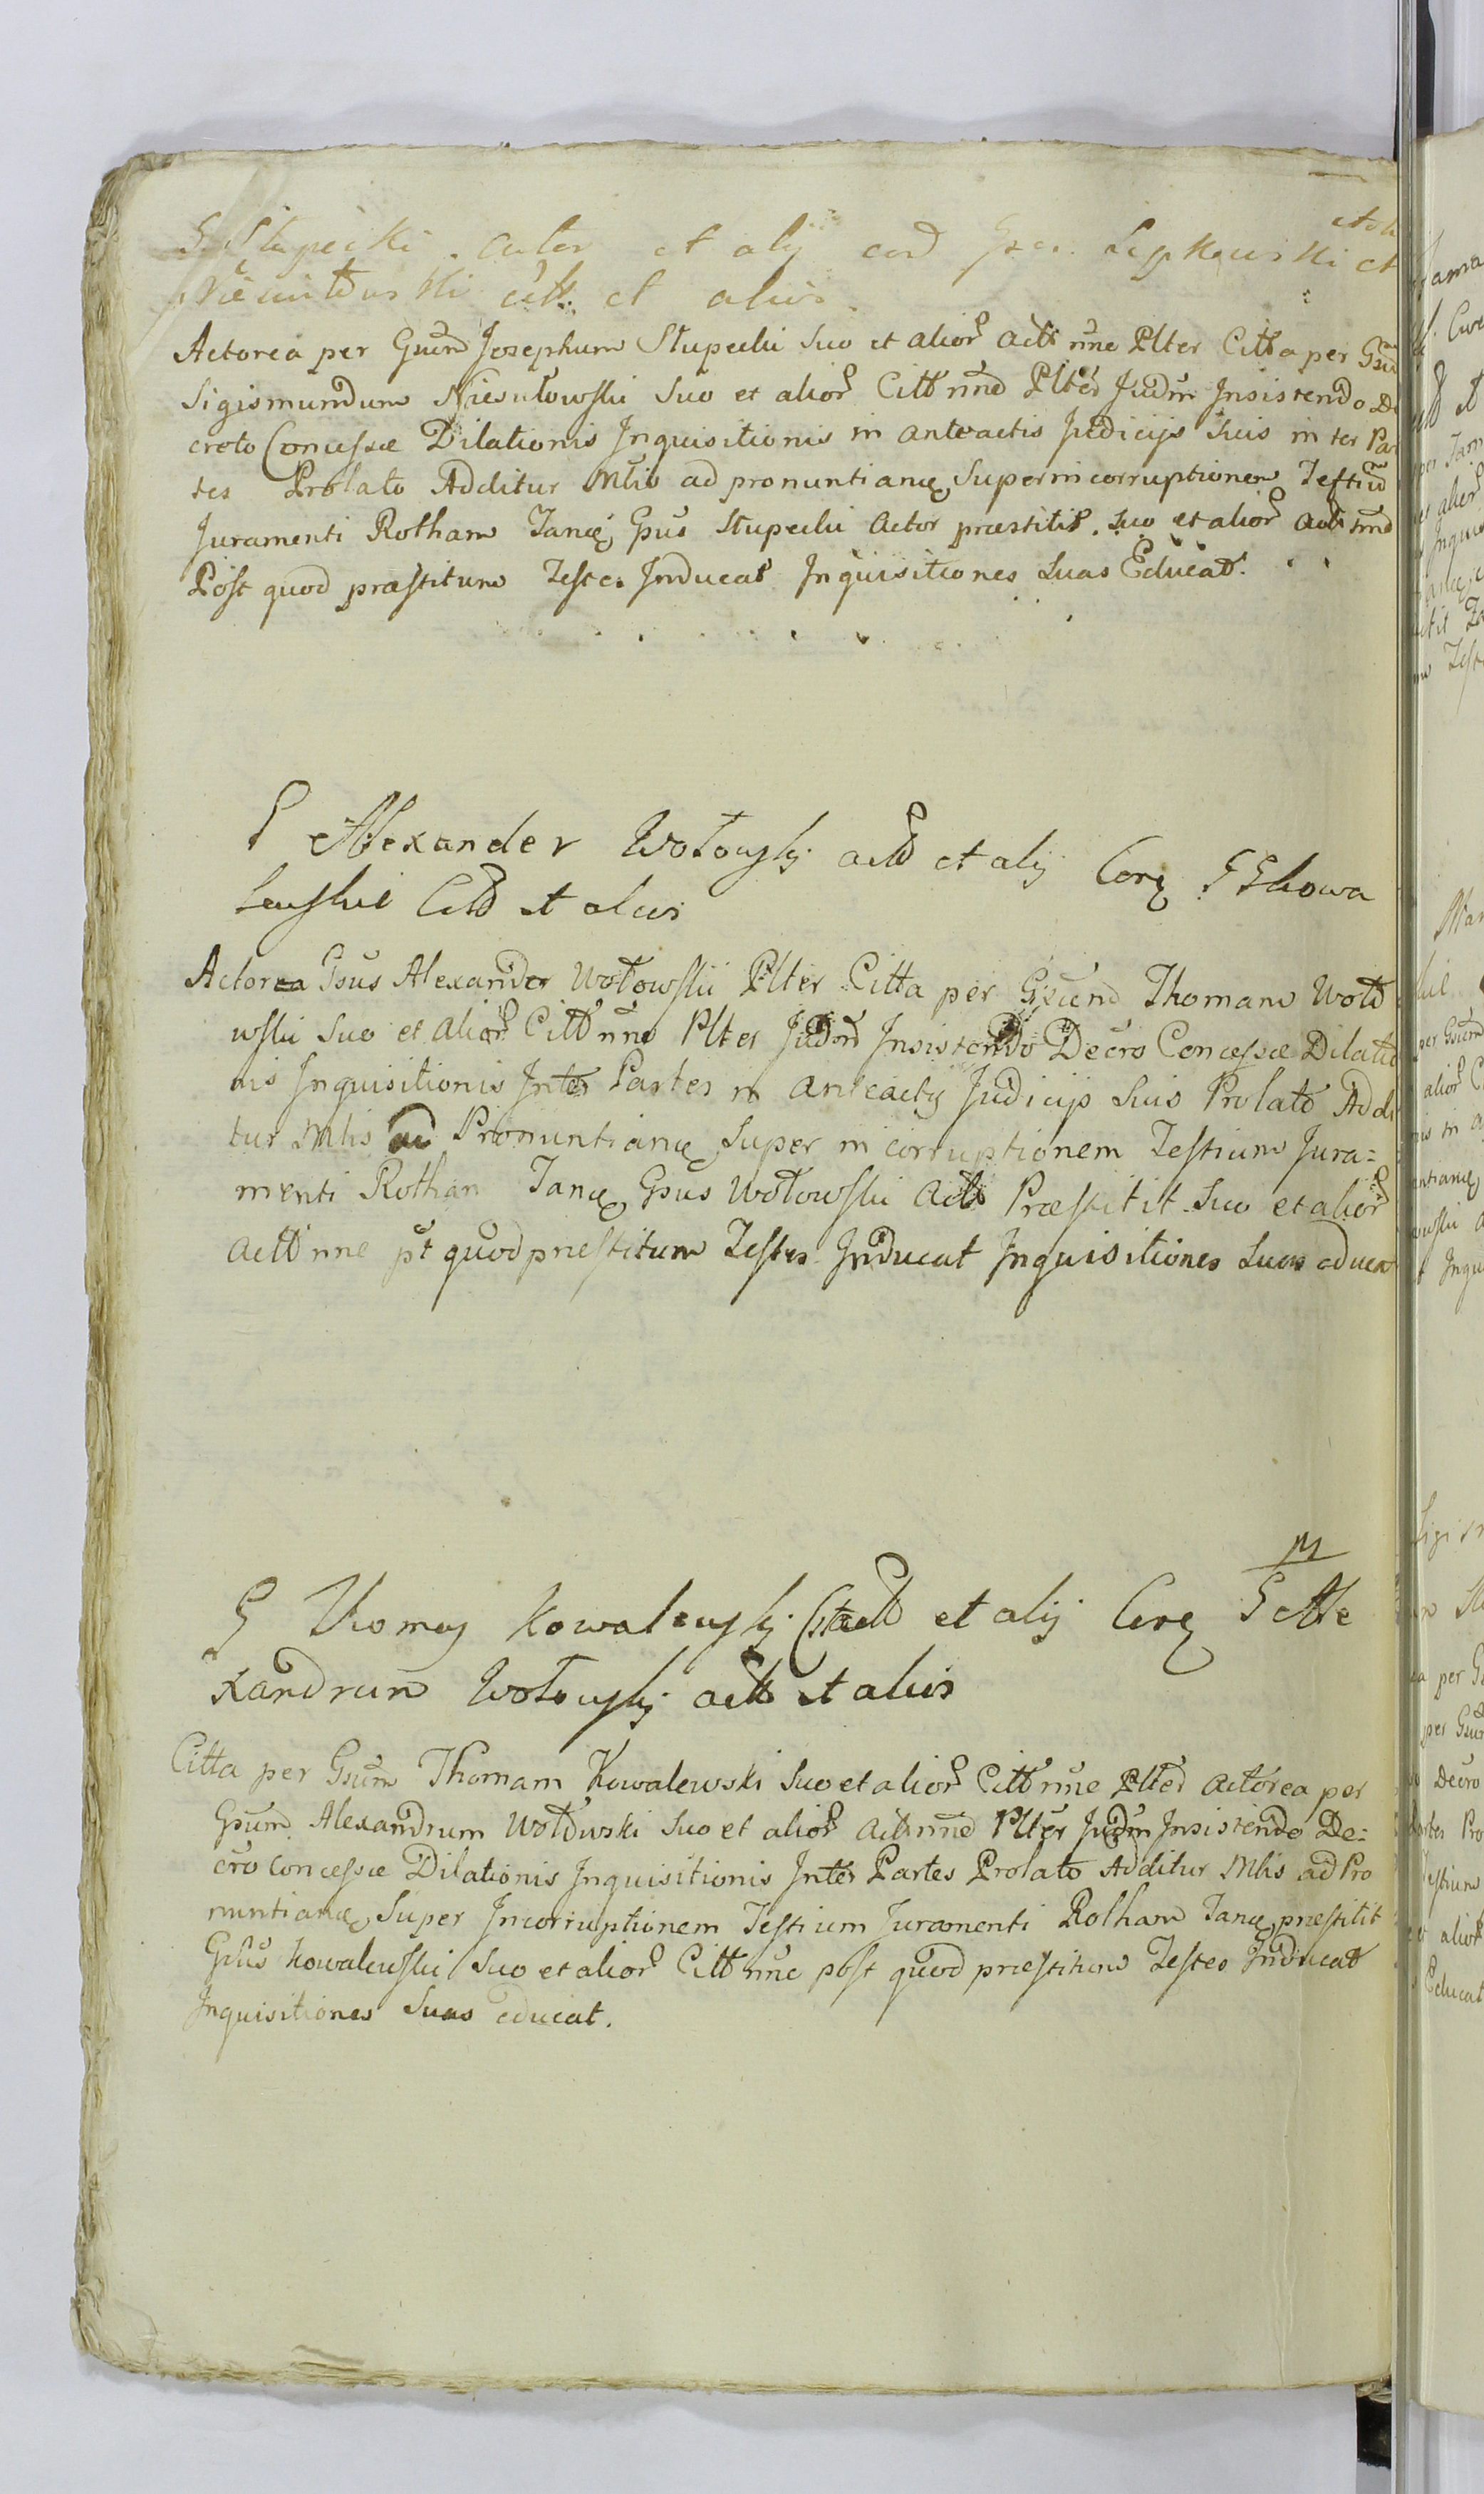 G Stupecki actor et alij cod Gsa. Lipkowski et
Niesułowski citt. et alios.
Actorea per Gsum Josephum Stupecki Suo et alior actt nne Plter Citta per Gsu
Sigismundum Niesułowski Suo et alior Citt nne Plter Judm Insistendo De
creto Concessæ Dilationis Inquisitionis in anteactis Judicijs Suis inter Par
tes Prolato Additur Mlis ad pronuntianę Super incorruptionem Testium
Juramenti Rotham Tanę Gsus Stupecki Actor præstitit. Suo et alior actt nne
Post quod præstitum Testes Inducat Inquisitiones Suas Educat.
G Alexander Wołowskj actt et alij Corę GG Kowa
lewskie Citt et alios
Actorea Gsus Alexander Wołowski Plter Citta per Gsum Thomam Woło
wski Suo et alior Citt nne Plter Judm Insistendo Decro Concessæ Dilatio
nis Inquisitionis Inter Partes in anteactis Judicijs Suis Prolato Addi
tur Mlis ad Pronuntianę Super in corruptionem Testium Jura=
menti Rotham Tanę Gsus Wołowski actt Præstitit Suo et alior
actt nne pt quod præstitum Testes Inducat Inquisitiones Suas educat
M
G Thomas Kowalewskj Citt et alij Corę G Ale
xandrum Wołowskj actt et alios
Citta per Gsum Thomam Kowalewski Suo et alior Citt nne Plter actorea per
Gsum Alexandrum Wołowski Suo et alior actt nne Plter Judm Insistendo De=
cro concessæ Dilationis Inquisitionis Inter Partes Prolato Additur Mlis ad Pro
nuntianę Super Incorruptionem Testium Juramenti Rotham Tanę præstitit
Gsus Kowalewski Suo et alior Citt nne post quod præstitum Testes Inducat
Inquisitiones Suas educat.